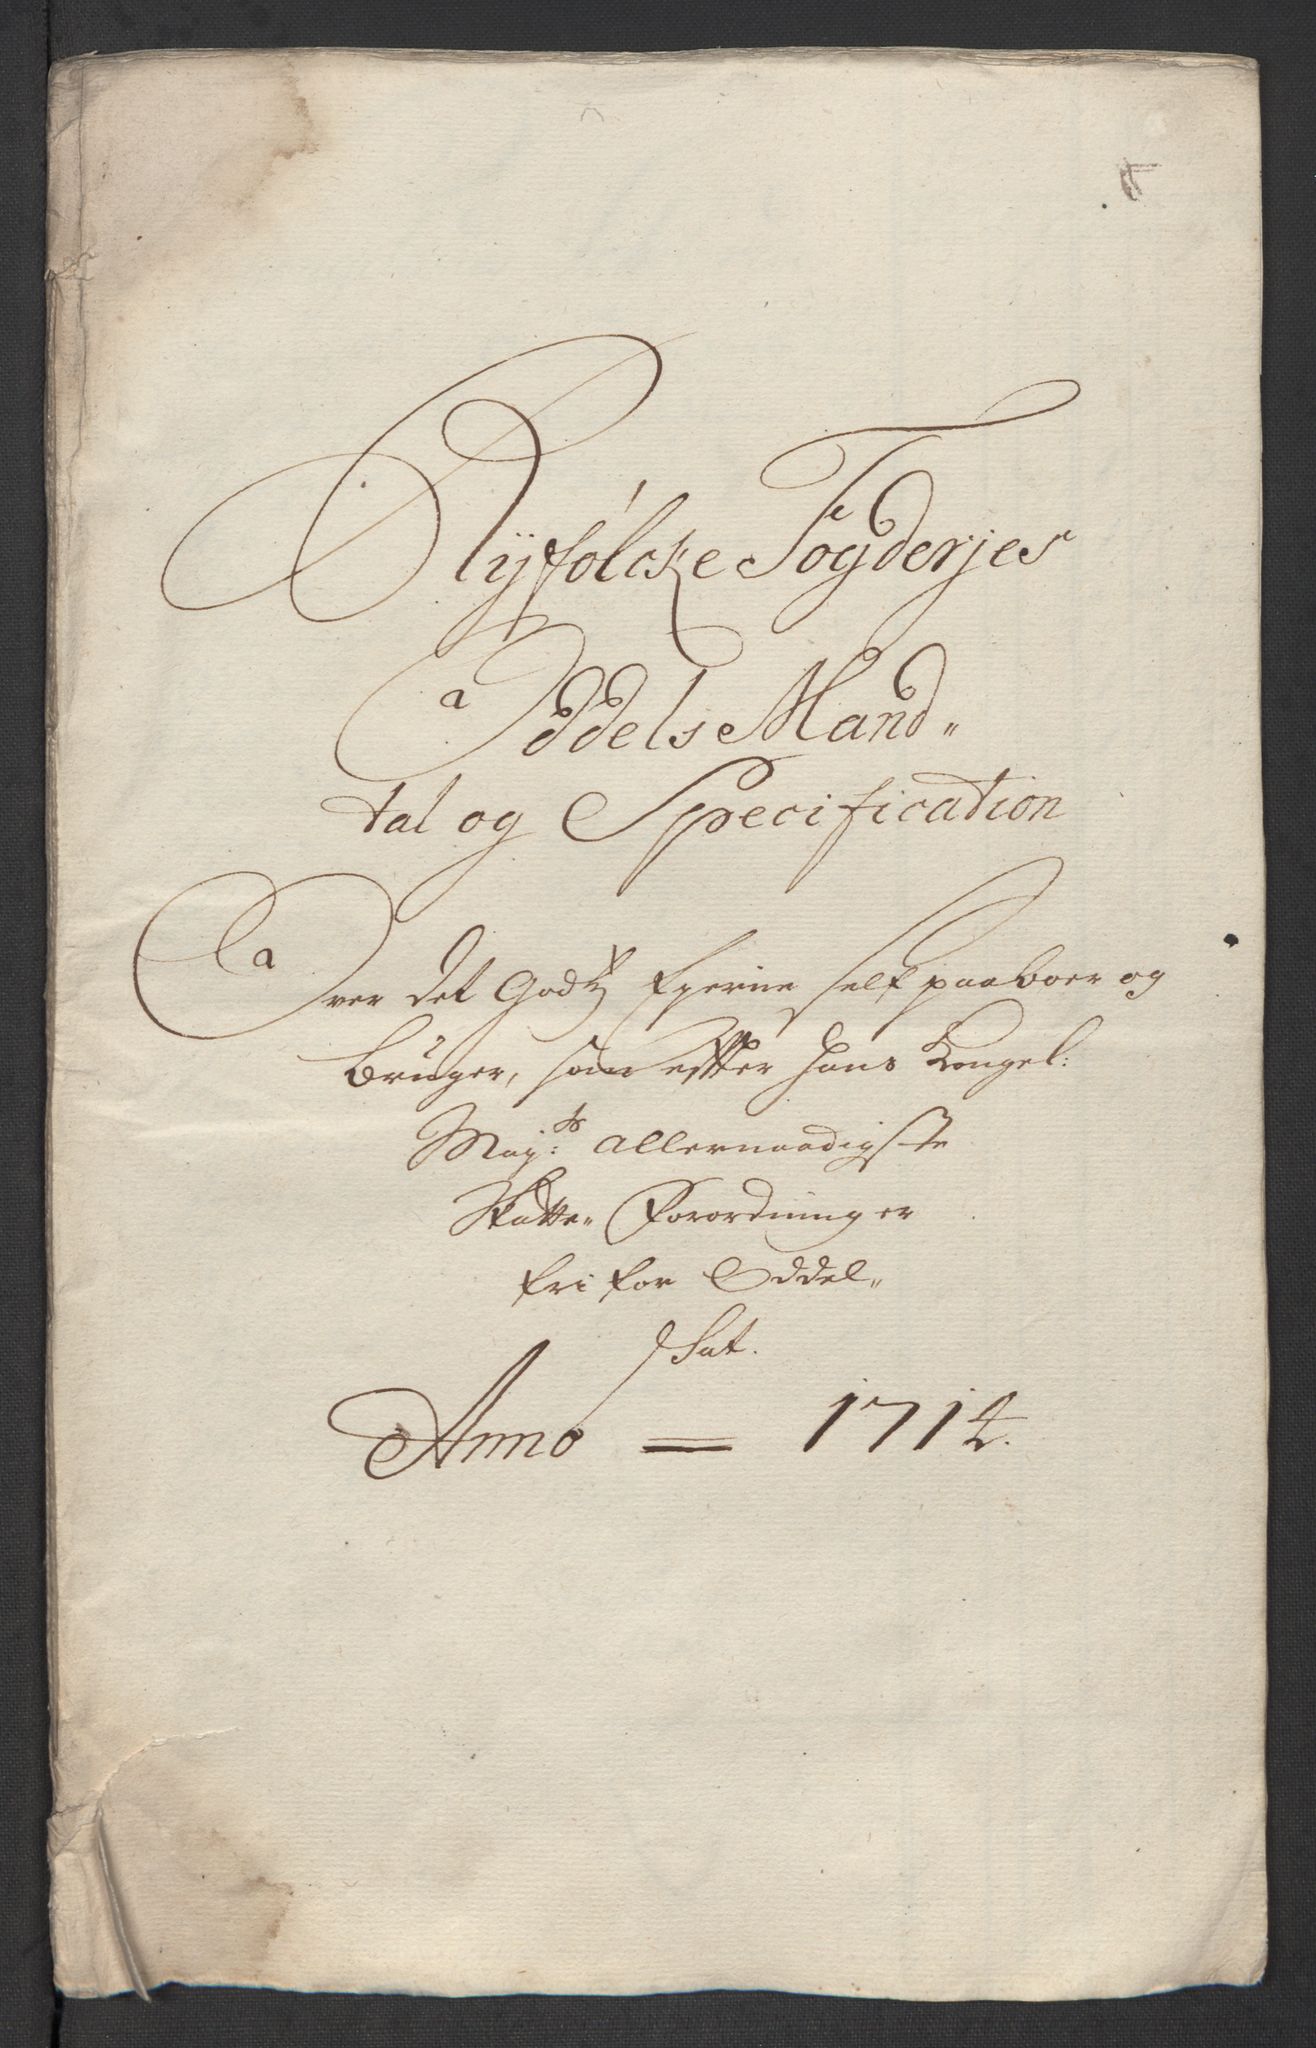 Ryfølcke Fogderjes
Oddels Mand„
tal og Specification
Over det Godtz Ejerne self paaboer og
bruger, som efter Hans Kongel:
Maj:ts allernaadigste
Skatte„ Forordninger
fri for Oddel„
Skat.
Anno = 1714.